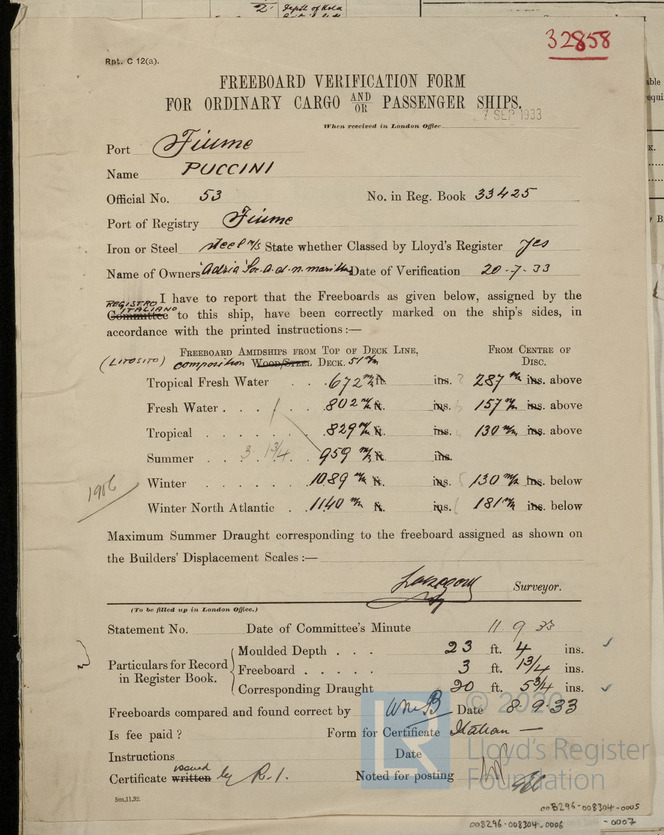 2
Depth of Hold
32858
Rpt. C 12(a).
FREEBOARD VERIFICATION FORM
FOR ORDINARY CARGO AND OR PASSENGER SHIPS.
7 SEP 1933
When received in London Office
Port Fiume
Name PUCCINI
Official No. 53 No. in Reg. Book 33425
Port of Registry Fiume
Iron or Steel steel State whether Classed by Lloyd's Register yes
Name of Owners "Adria" Date of Verification 20-7-33
I have to report that the Freeboards as given below, assigned by the
REGISTRO ITALIANO
Committee to this ship, have been correctly marked on the ship's sides, in
accordance with the printed instructions:—
FREEBOARD AMIDSHIPS FROM TOP OF DECK LINE, FROM CENTRE OF
(LITOSITO) composition WOOD/STEEL DECK. 51 m/m DISC.
Tropical Fresh Water . . 672 m/m ft. ins. 287 m/m ins. above
Fresh Water . . . 802 m/m ft. ins. 157 m/m ins. above
Tropical . . . . . 829 m/m ft. ins. 130 m/m ins. above
Summer . . 3 1 3/4 . . 959 m/m ft. ins.
1906
Winter . . . . . 1089 m/m ft. ins. 130 m/m ins. below
Winter North Atlantic . 1140 m/m ft. ins. 181 m/m ins. below
Maximum Summer Draught corresponding to the freeboard assigned as shown on
the Builders' Displacement Scales :—
Surveyor.
(To be filled up in London Office.)
Statement No. Date of Committee's Minute 11 9 33
Particulars for Record in Register Book.
Moulded Depth . . . 23 ft. 4 ins.
Freeboard . . . . . 3 ft. 1 3/4 ins.
Corresponding Draught 20 ft. 5 3/4 ins.
Freeboards compared and found correct by WMB Date 8.9.33
Is fee paid ? Form for Certificate Italian —
Instructions Date
Certificate written issued by R.I. Noted for posting
5m,11,32.
© 2020
LR
Lloyd's Register
Foundation
008296-008304-0005
008296-008304-0006 -0007